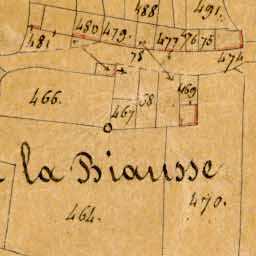 488
491.
480 479.
477 76 75
481
78
474
466.
467
68
469
la Biausse
464.
470.